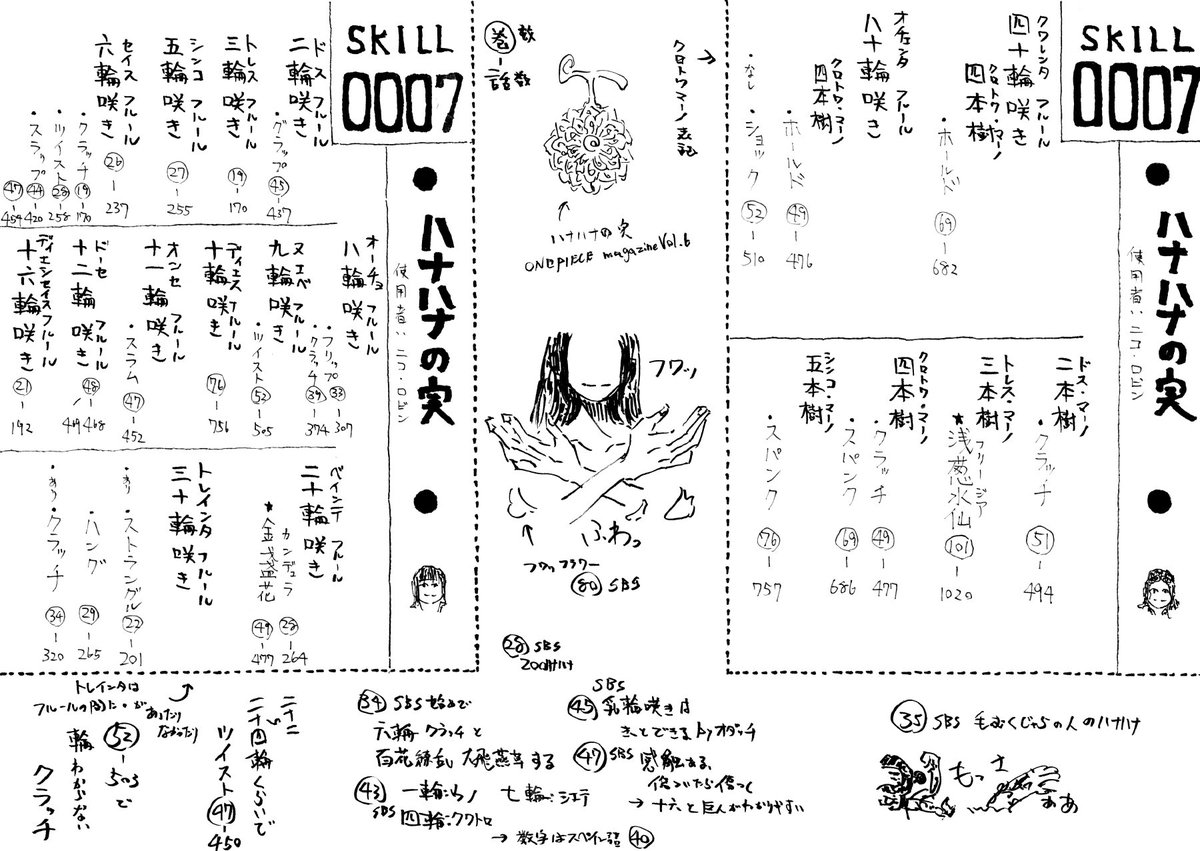 SKILL
0007
ハナハナの実
使用者い ニコ・ロビン
クワレンタ フルール
四十輪咲き
クロトワ・マーノ
四本樹
・ホールド
69-682
オチェンタ フルール
八十輪咲き
クロトワ・マーノ
四本樹
・ホールド
49-476
・なし
・ショック
52-510
ドス・マーノ
二本樹
・クラッチ
51-494
トレス・マーノ
三本樹
フリージア
*浅葱水仙
101-1020
クロトワ・マーノ
四本樹
・クラッチ
49-477
・スパンク
69-686
シンコ・マーノ
五本樹
・スパンク
76-757
→
クロトワマーノ表記
巻数-話数
↑
ハナハナの実
ONE PIECE magazine Vol.6
フワッ
ふわっ
↑
フワッフラワー
80 SBS
28 SBS
SKILL
0007
ハナハナの実
使用者い ニコ・ロビン
ドス フルール
二輪咲き
・グラップ
45-437
トレス フルール
三輪咲き
19-170
シンコ フルール
五輪咲き
27-255
セイス フルール
六輪咲き
26-237
・クラッチ
19-170
・ツイスト
28-258
・スラップ
44-420
47-459
オーチョ フルール
八輪咲き
・フリップ
33-307
・クラッチ
39-374
ヌエベ フルール
九輪咲き
・ツイスト
52-505
ディエス フルール
十輪咲き
76-756
オンセ フルール
十一輪咲き
・スラム
47-452
ドーセ フルール
十二輪咲き
48-468
ディエンセイスフルール
十六輪咲き
21-192
ベインテ フルール
二十輪咲き
カンデュラ
28-264
*金戔盞花
49-477
トレインタ フルール
三十輪咲き
・あり
・ストラングル
22-201
・ハング
29-265
・あり
・クラッチ
34-320
トレインタは
フルールの間に・が
あったり
なかったり
52-503で
輪わからない
クラッチ
二十二
二十四輪くらいで
ツイスト
47-450
34 SBS
六輪クラッチと
百花繚乱 大飛燕草する
43 SBS
一輪:ウノ 七輪:シエテ
四輪:クワトロ
→ 数字はスペイン語 40
45 SBS 乳輪咲きは
きっとできる by オダッチ
47 SBS 感触ある、
傷ついたら傷つく
→ 十六と巨人がわかりやすい
35 SBS 毛むくじゃらの人のハナハナ
もっさ
ぁあ